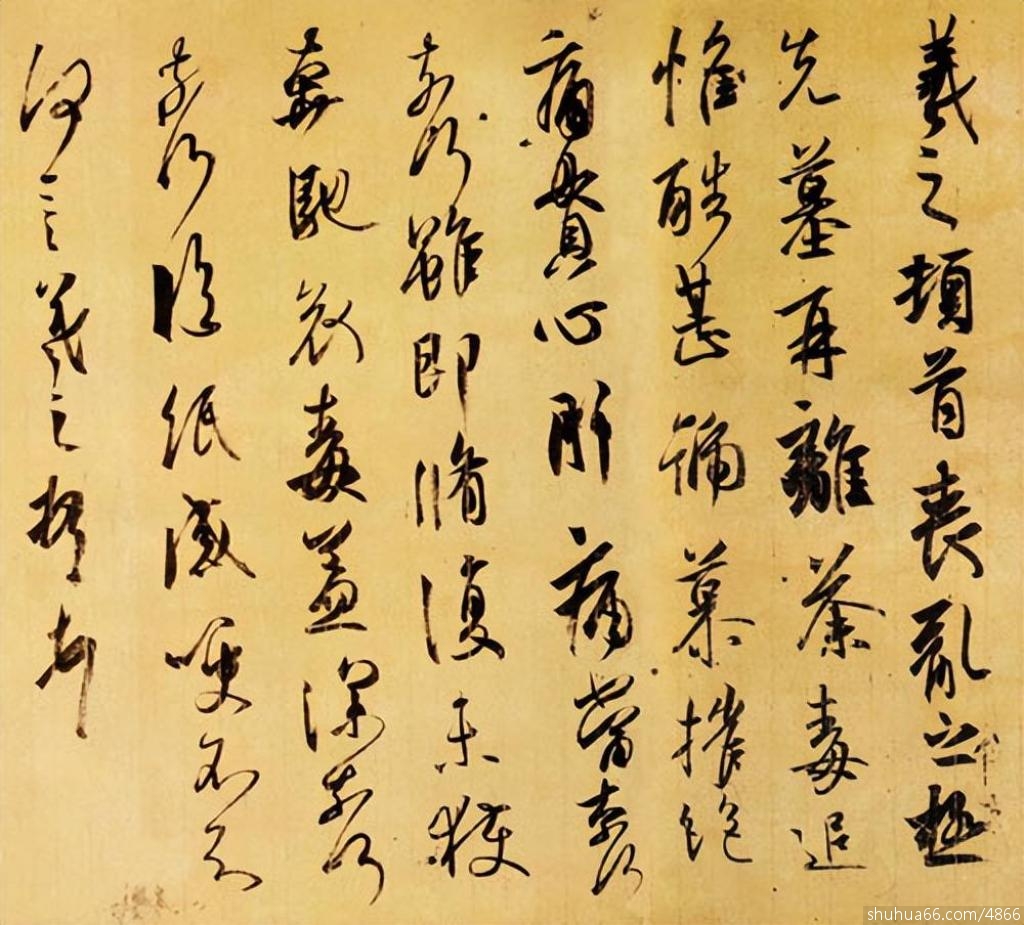 羲之頓首喪亂之極
先墓再離荼毒追
惟酷甚號慕摧絕
痛貫心肝痛當奈何
奈何雖即脩復未獲
奔馳哀毒益深奈何
奈何臨紙感哽不知
何言羲之頓首頓首
shuhua66.com/4866